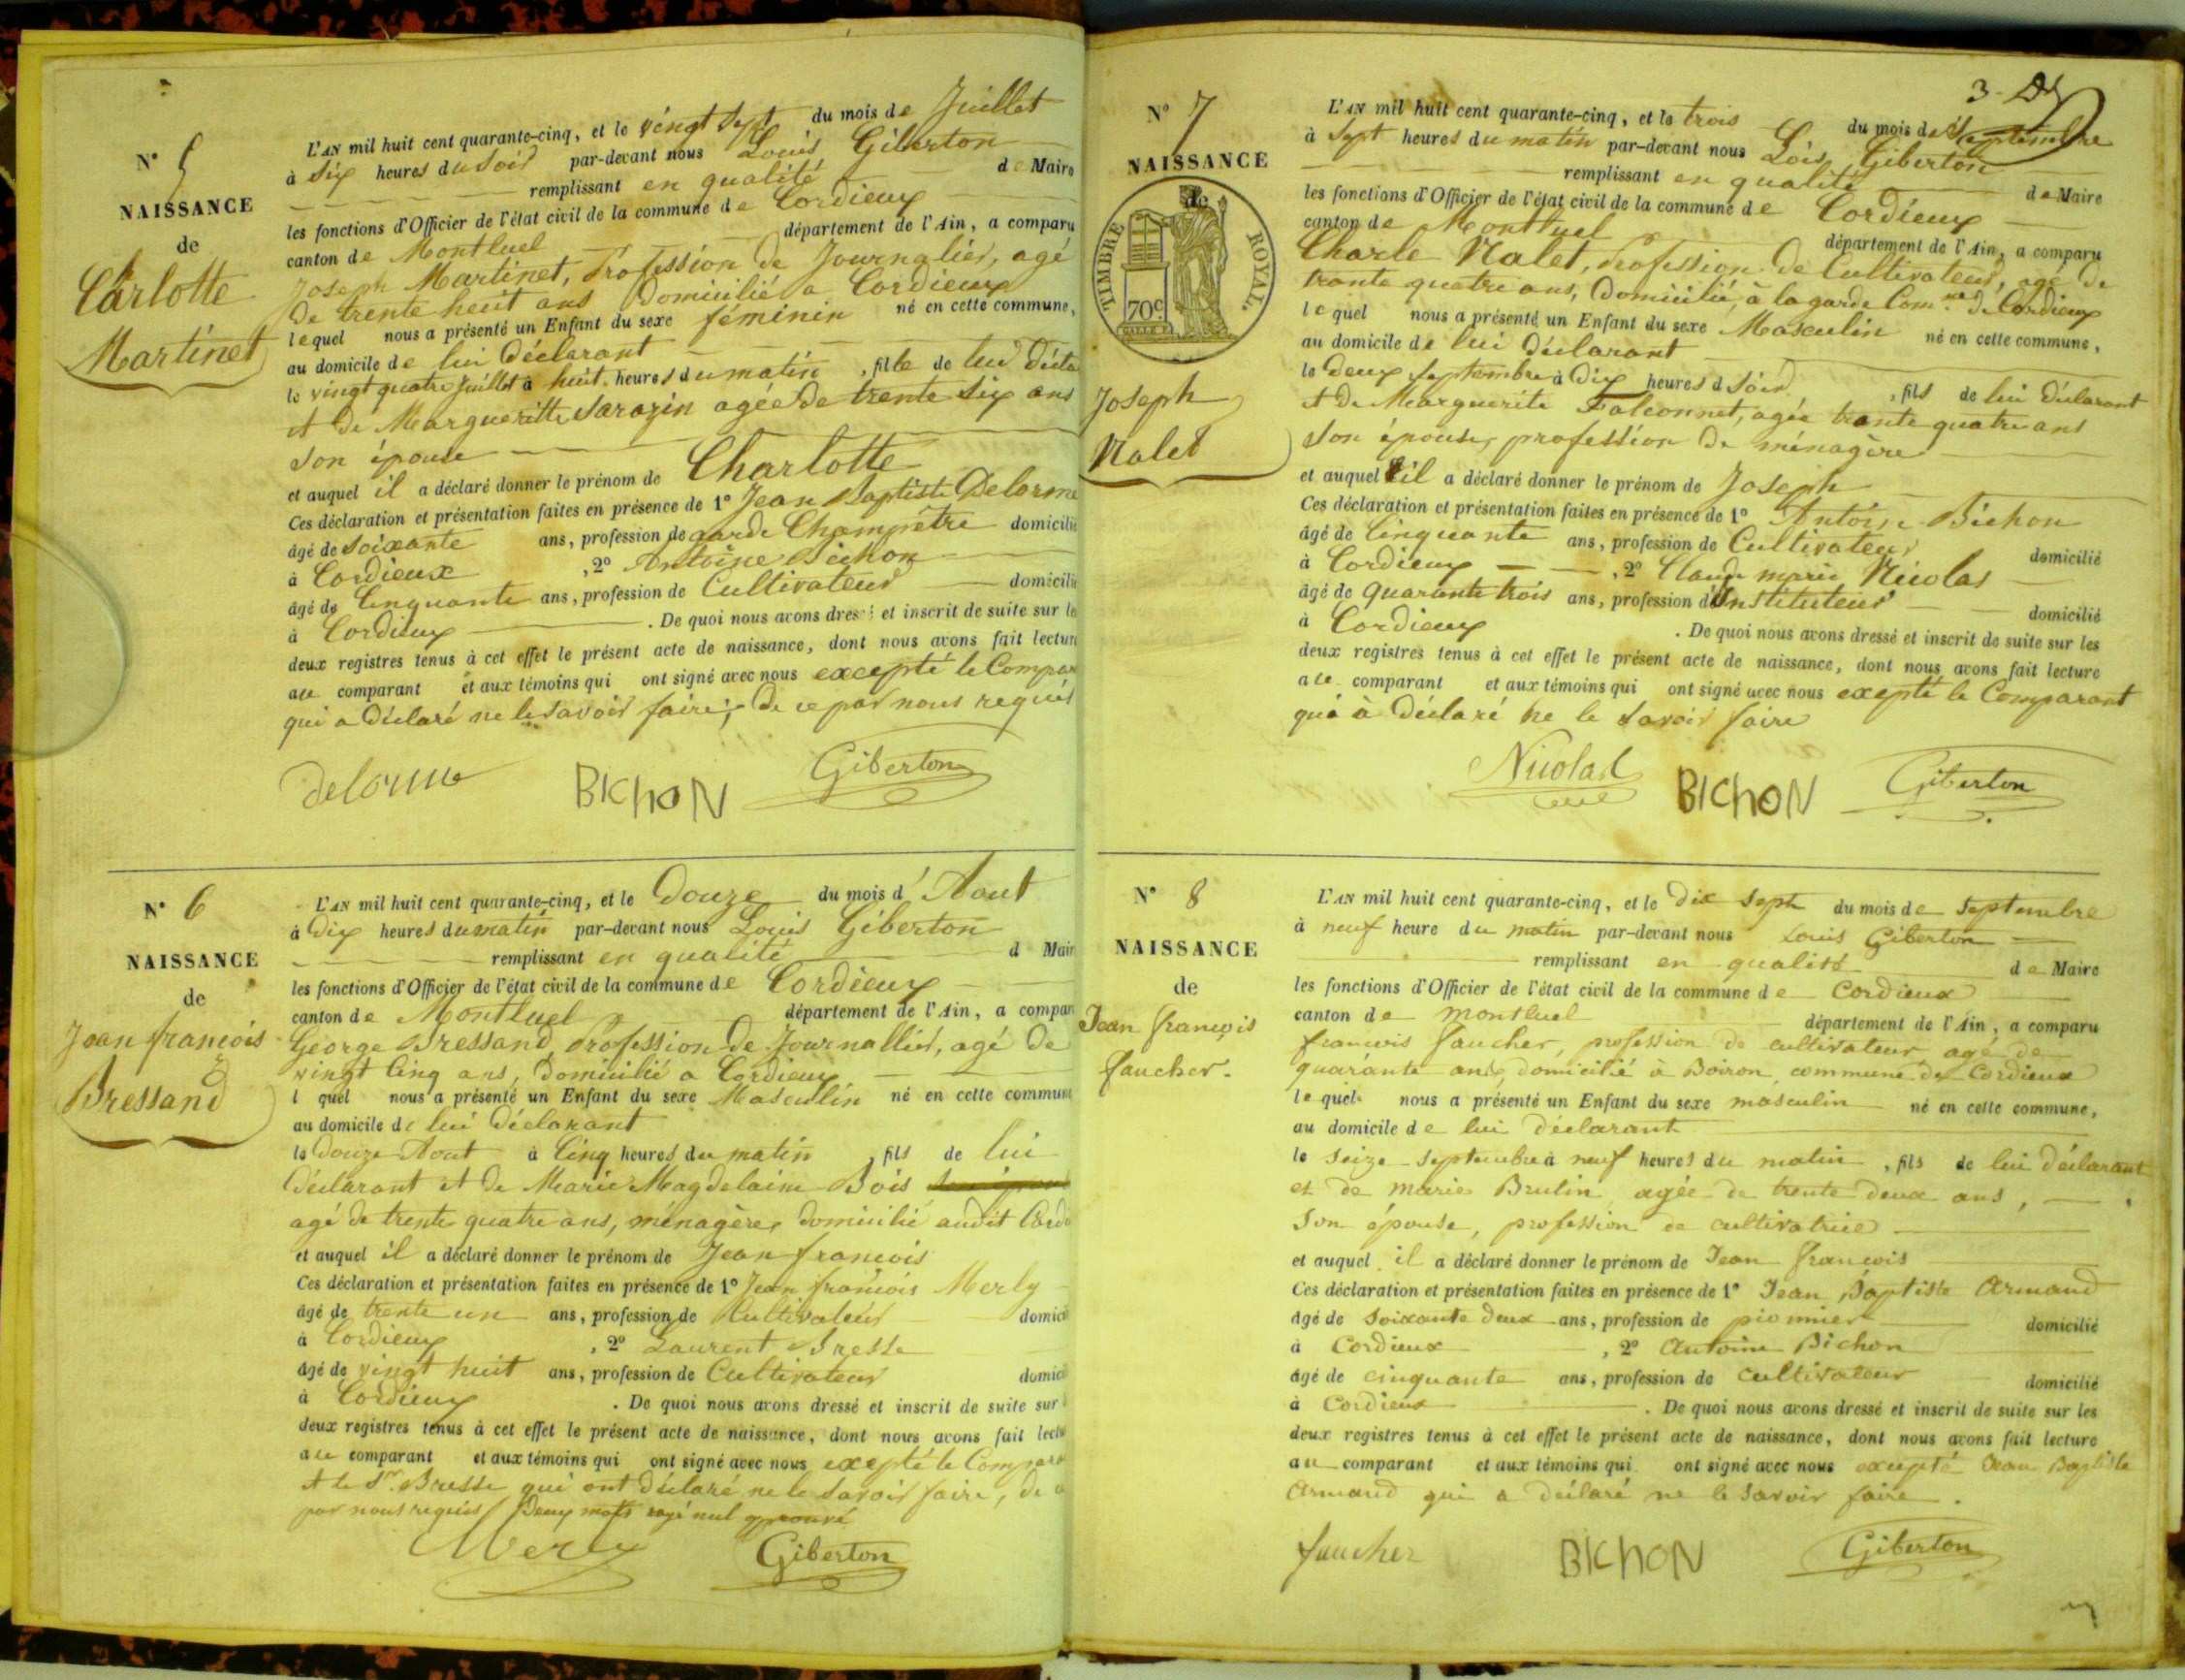 N° 5
NAISSANCE
de
Carlotte
Martinet
L'AN mil huit cent quarante-cinq, et le vingt sept du mois de Juillet
à six heures du soir par-devant nous Louis Giberton
remplissant en qualité de Maire
les fonctions d'Officier de l'état civil de la commune de Cordieux
canton de Montluel département de l'Ain, a comparu
Joseph Martinet, Profession de Journalier, agé
de trente heuit ans Domicilié a Cordieux
lequel nous a présenté un Enfant du sexe féminin né en cette commune,
au domicile de lui déclarant
le vingt quatre Juillet à huit heures du matin, fille de lui décla
et de Margueritte Sarazin agée de trente six ans
son épouse
et auquel il a déclaré donner le prénom de Charlotte
Ces déclaration et présentation faites en présence de 1° Jean Baptiste Delorme
âgé de soixante ans, profession de garde Champêtre domicilié
à Cordieux, 2° Antoine Bichon
âgé de Cinquante ans, profession de Cultivateur domicilié
à Cordieux. De quoi nous avons dressé et inscrit de suite sur le
deux registres tenus à cet effet le présent acte de naissance, dont nous avons fait lecture
au comparant et aux témoins qui ont signé avec nous excepté le Compar
qui a déclaré ne le savoir faire, de ce par nous requis
delorme BICHON Giberton
N° 6
NAISSANCE
de
Jean francois
Bressand
L'AN mil huit cent quarante-cinq, et le Douze du mois d'Aout
à Dix heures du matin par-devant nous Louis Giberton
remplissant en qualité d Mair
les fonctions d'Officier de l'état civil de la commune de Cordieux
canton de Montluel département de l'Ain, a compar
George Bressand, Profession de Journallier, agé de
vingt Cinq ans, Domicilié a Cordieux
l quel nous a présenté un Enfant du sexe Masculin né en cette commune
au domicile de lui Déclarant
le Douze Aout à Cinq heures du matin, fils de lui
Déclarant et de Marie Magdelaine Bois
agé de trente quatre ans, ménagère, domicilié audit Cordi
et auquel il a déclaré donner le prénom de Jean francois
Ces déclaration et présentation faites en présence de 1° Jean francois Merly
âgé de trente un ans, profession de Cultivateur domici
à Cordieux, 2° Laurent Bresse
âgé de vingt huit ans, profession de Cultivateur domici
à Cordieux. De quoi nous avons dressé et inscrit de suite sur
deux registres tenus à cet effet le présent acte de naissance, dont nous avons fait lectu
au comparant et aux témoins qui ont signé avec nous excepté le Compar
et le Sr. Bresse qui ont déclaré ne le savoir faire, de c
par nous requis / Deux mots rayé nul approuvé
Merly Giberton
3
N° 7
NAISSANCE
de
TIMBRE ROYAL.
70c
Joseph
Nalet
L'AN mil huit cent quarante-cinq, et le trois du mois de Septembre
à Sept heures du matin par-devant nous Lois Giberton
remplissant en qualité de Maire
les fonctions d'Officier de l'état civil de la commune de Cordieux
canton de Montluel département de l'Ain, a comparu
Charle Nalet, Profession de Cultivateur, agé de
trante quatre ans, Domicilié à la garde Comne de Cordieux
lequel nous a présenté un Enfant du sexe Masculin né en cette commune,
au domicile de lui Déclarant
le Deux Septembre à Dix heures d Soir, fils de lui Déclarant
et de Marguerite Falconnet, agée trante quatre ans
son épouse, profession de ménagère
et auquel il a déclaré donner le prénom de Joseph
Ces déclaration et présentation faites en présence de 1° Antoine Bichon
âgé de Cinquante ans, profession de Cultivateur domicilié
à Cordieux, 2° Claude marie Nicolas
âgé de quarante trois ans, profession d'Instituteur domicilié
à Cordieux. De quoi nous avons dressé et inscrit de suite sur les
deux registres tenus à cet effet le présent acte de naissance, dont nous avons fait lecture
au comparant et aux témoins qui ont signé avec nous excepté le Comparant
qui à Déclaré ne le savoir faire
Nicolas BICHON Giberton
N° 8
NAISSANCE
de
Jean françois
faucher.
L'AN mil huit cent quarante-cinq, et le dix sept du mois de septembre
à neuf heure du matin par-devant nous Louis Giberton
remplissant en qualité de Maire
les fonctions d'Officier de l'état civil de la commune de Cordieux
canton de montluel département de l'Ain, a comparu
francois faucher, profession de cultivateur agé de
quarante ans, domicilié à Boiron commune de Cordieux
lequel nous a présenté un Enfant du sexe masculin né en cette commune,
au domicile de lui déclarant
le seize septembre à neuf heures du matin, fils de lui déclarant
et de marie Brulin agée de trente deux ans,
son épouse, profession de cultivatrice
et auquel il a déclaré donner le prénom de Jean françois
Ces déclaration et présentation faites en présence de 1° Jean Baptiste Armand
âgé de soixante deux ans, profession de pionnier domicilié
à Cordieux, 2° Antoine Bichon
âgé de cinquante ans, profession de cultivateur domicilié
à Cordieux. De quoi nous avons dressé et inscrit de suite sur les
deux registres tenus à cet effet le présent acte de naissance, dont nous avons fait lecture
au comparant et aux témoins qui ont signé avec nous excepté Jean Baptiste
Armand qui a déclaré ne le savoir faire.
faucher BICHON Giberton